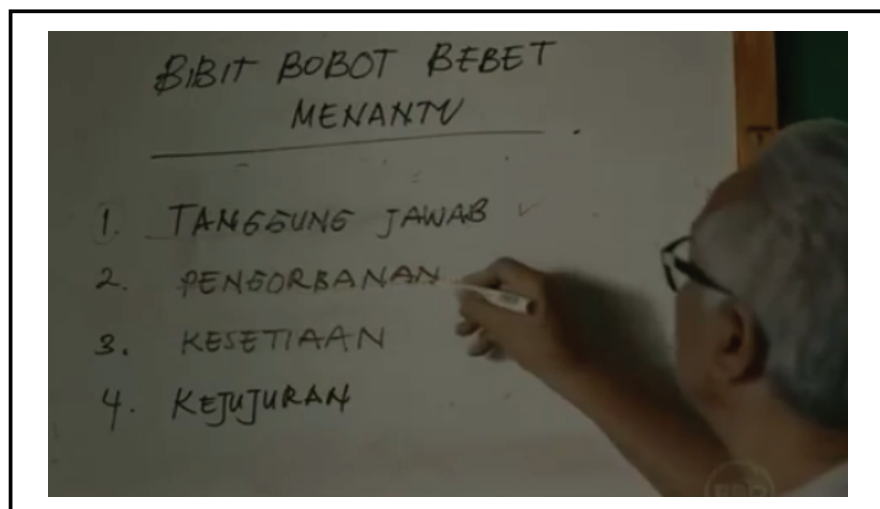 BIBIT BOBOT BEBET
MENANTU
1. TANGGUNG JAWAB
2. PENGORBANAN
3. KESETIAAN
4. KEJUJURAN